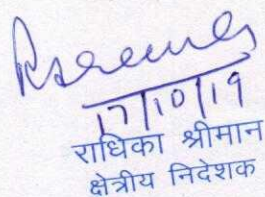 17/10/19
राधिका श्रीमान
क्षेत्रीय निदेशक